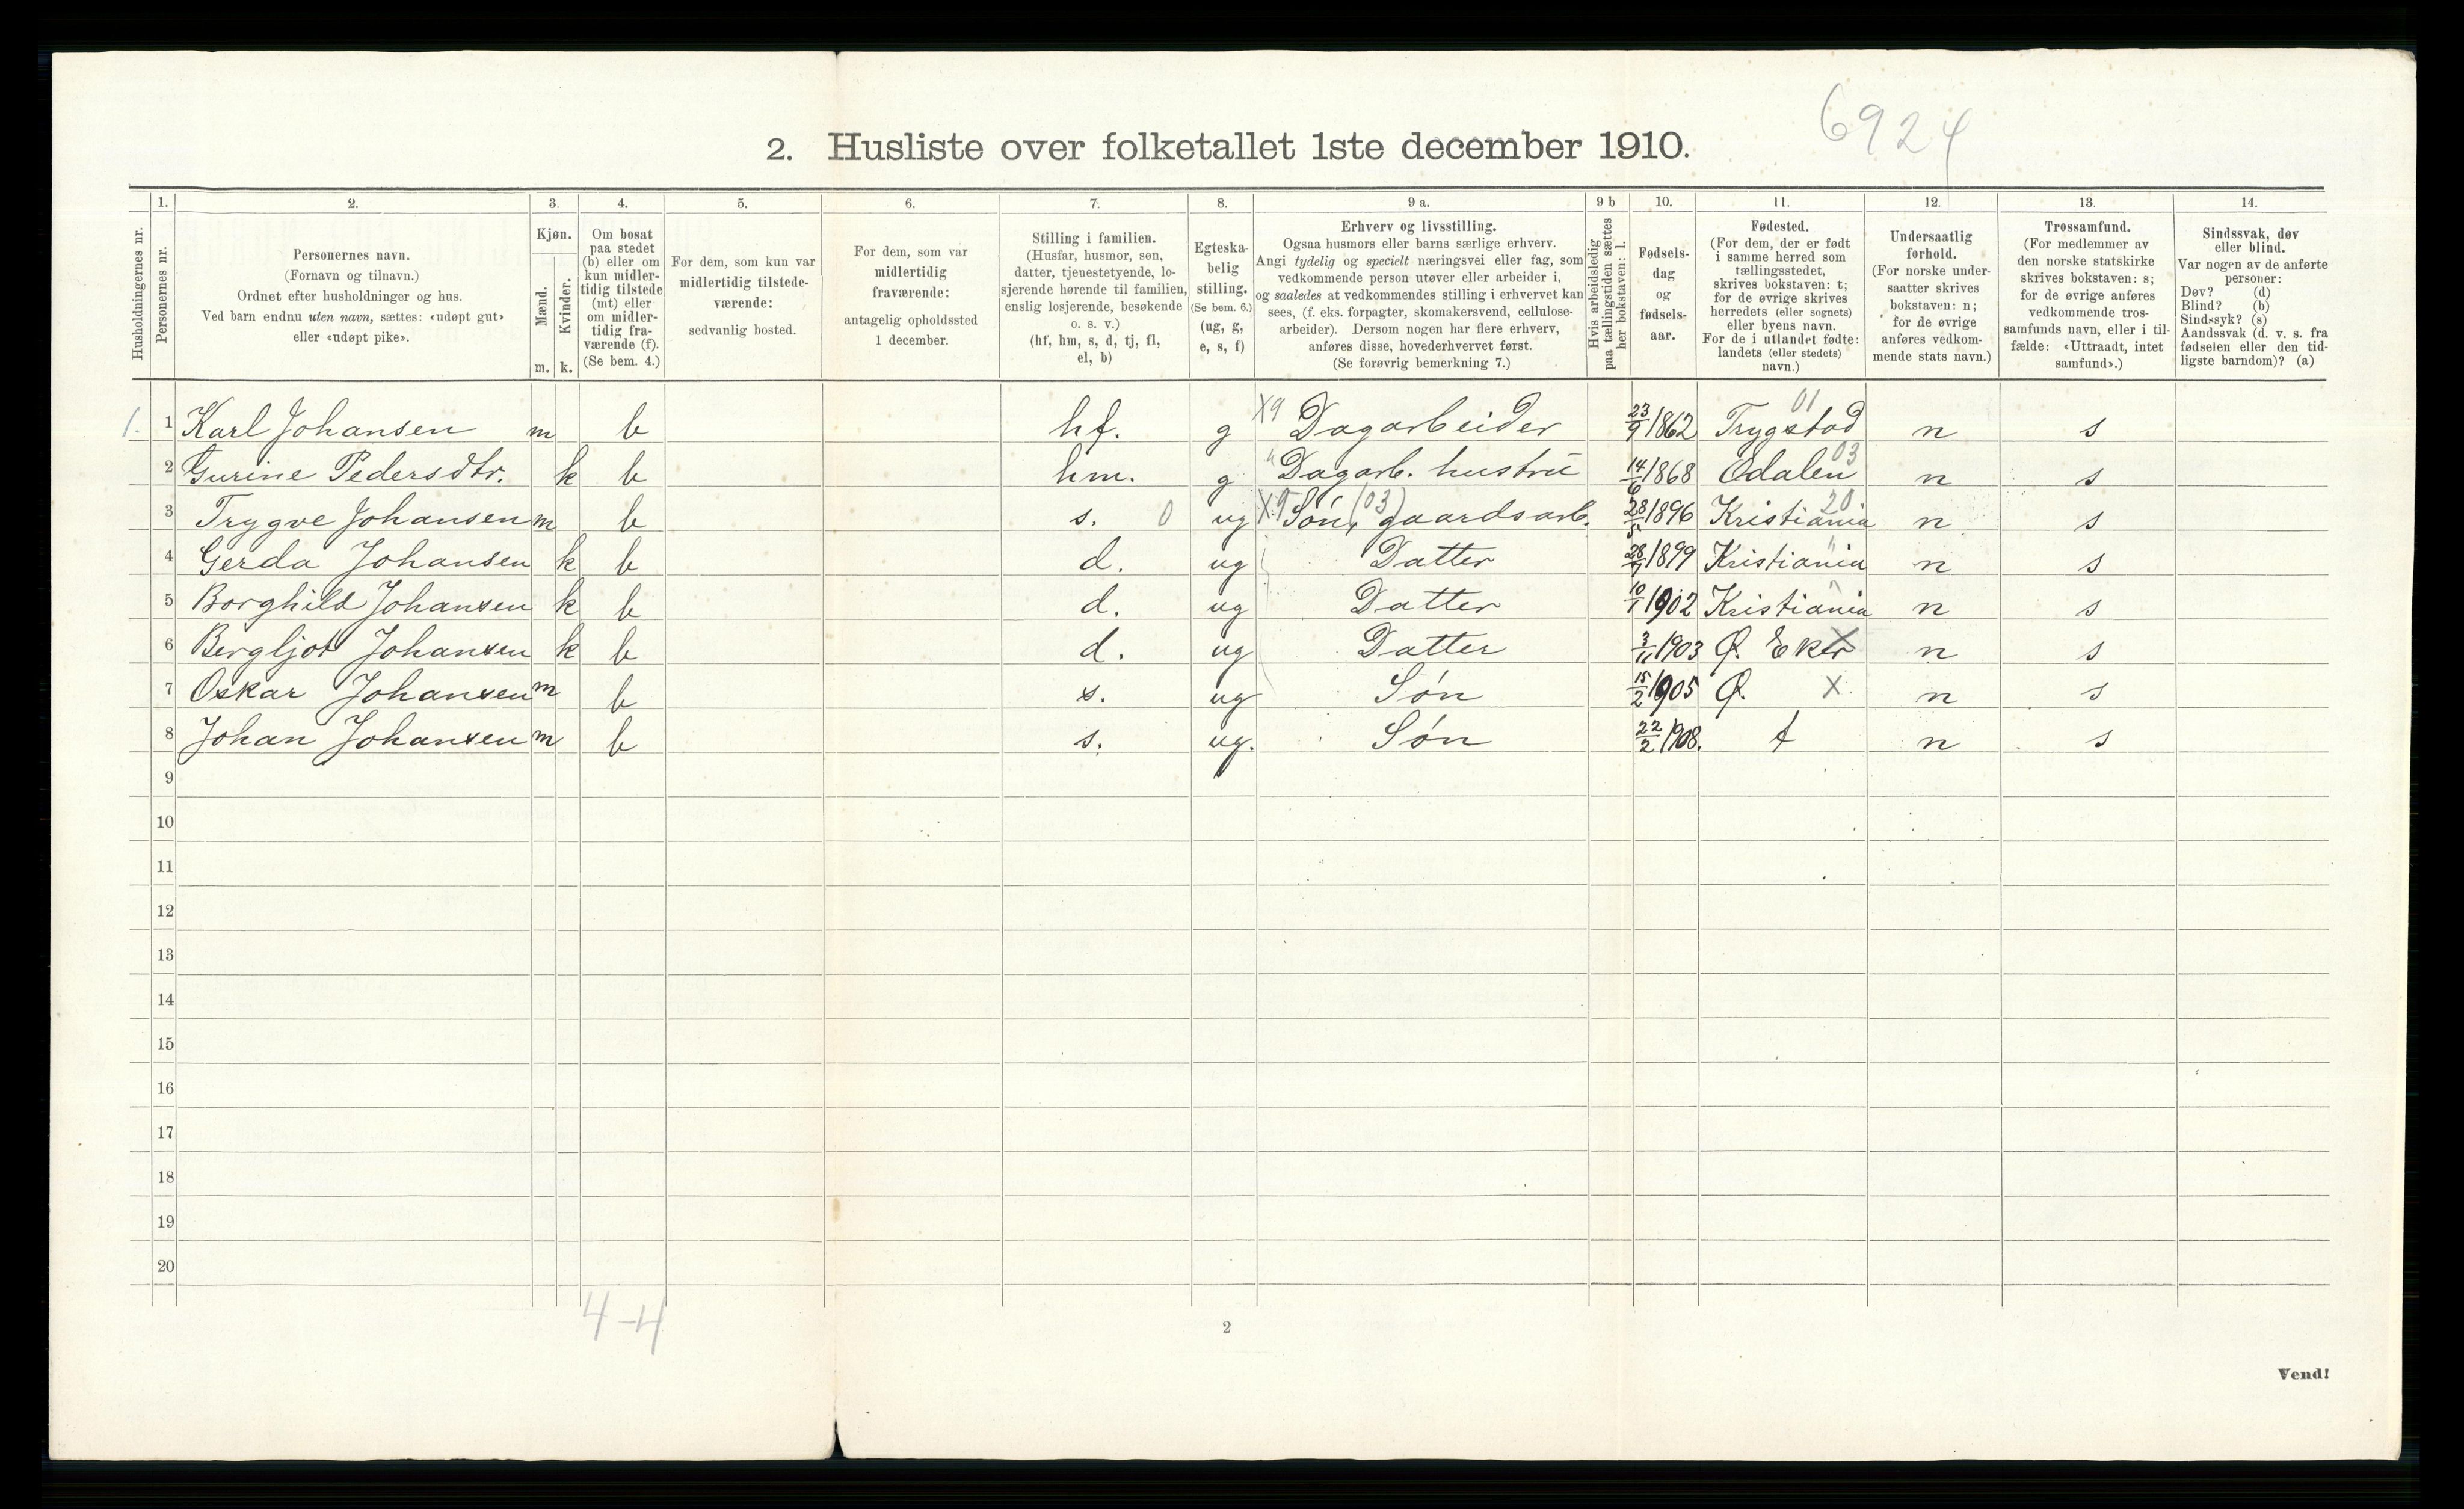 6924
2. Husliste over folketallet 1ste december 1910.
1. 2. 3. 4. 5. 6. 7. 8. 9 a. 9 b 10. 11. 12. 13. 14.
Husholdningernes nr.
Personernes nr.
Personernes navn.
(Fornavn og tilnavn.)
Ordnet efter husholdninger og hus.
Ved barn endnu uten navn, sættes: «udøpt gut»
eller «udøpt pike».
Kjøn.
Mænd.
Kvinder.
m. k.
Om bosat
paa stedet
(b) eller om
kun midler-
tidig tilstede
(mt) eller
om midler-
tidig fra-
værende (f).
(Se bem. 4.)
For dem, som kun var
midlertidig tilstede-
værende:
sedvanlig bosted.
For dem, som var
midlertidig
fraværende:
antagelig opholdssted
1 december.
Stilling i familien.
(Husfar, husmor, søn,
datter, tjenestetyende, lo-
sjerende hørende til familien,
enslig losjerende, besøkende
o. s. v.)
(hf, hm, s, d, tj, fl,
el, b)
Egteska-
belig
stilling.
(Se bem. 6.)
(ug, g,
e, s, f)
Erhverv og livsstilling.
Ogsaa husmors eller barns særlige erhverv.
Angi tydelig og specielt næringsvei eller fag, som
vedkommende person utøver eller arbeider i,
og saaledes at vedkommendes stilling i erhvervet kan
sees, (f. eks. forpagter, skomakersvend, cellulose-
arbeider). Dersom nogen har flere erhverv,
anføres disse, hovederhvervet først.
(Se forøvrig bemerkning 7.)
Hvis arbeidsledig
paa tællingstiden sættes
her bokstaven: l.
Fødsels-
dag
og
fødsels-
aar.
Fødested.
(For dem, der er født
i samme herred som
tællingsstedet,
skrives bokstaven: t;
for de øvrige skrives
herredets (eller sognets)
eller byens navn.
For de i utlandet fødte:
landets (eller stedets)
navn.)
Undersaatlig
forhold.
(For norske under-
saatter skrives
bokstaven: n;
for de øvrige
anføres vedkom-
mende stats navn.)
Trossamfund.
(For medlemmer av
den norske statskirke
skrives bokstaven: s;
for de øvrige anføres
vedkommende tros-
samfunds navn, eller i til-
fælde: «Uttraadt, intet
samfund».)
Sindssvak, døv
eller blind.
Var nogen av de anførte
personer:
Døv? (d)
Blind? (b)
Sindssyk? (s)
Aandssvak (d. v. s. fra
fødselen eller den tid-
ligste barndom)? (a)
1. 1 Karl Johansen m b hf. g X9 Dagarbeider 23/9 1862 Trygstad 01 n s
2 Gurine Pedersdtr. k b hm. g " Dagarb. hustru 14/6 1868 Odalen 03 n s
3 Trygve Johansen m b s. 0 ug X9 Søn, (03) gaardsarb. 28/5 1896 Kristiania 20 n s
4 Gerda Johansen k b d. ug Datter 28/7 1899 Kristiania " n s
5 Borghild Johansen k b d. ug Datter 10/1 1902 Kristiania " n s
6 Bergljot Johansen k b d. ug Datter 3/11 1903 Ø. Eker X n s
7 Oskar Johansen m b s. ug Søn 15/2 1905 Ø. X n s
8 Johan Johansen m b s. ug. Søn 22/2 1908. t n s
9
10
11
12
13
14
15
16
17
18
19
20
4-4
2
Vend!